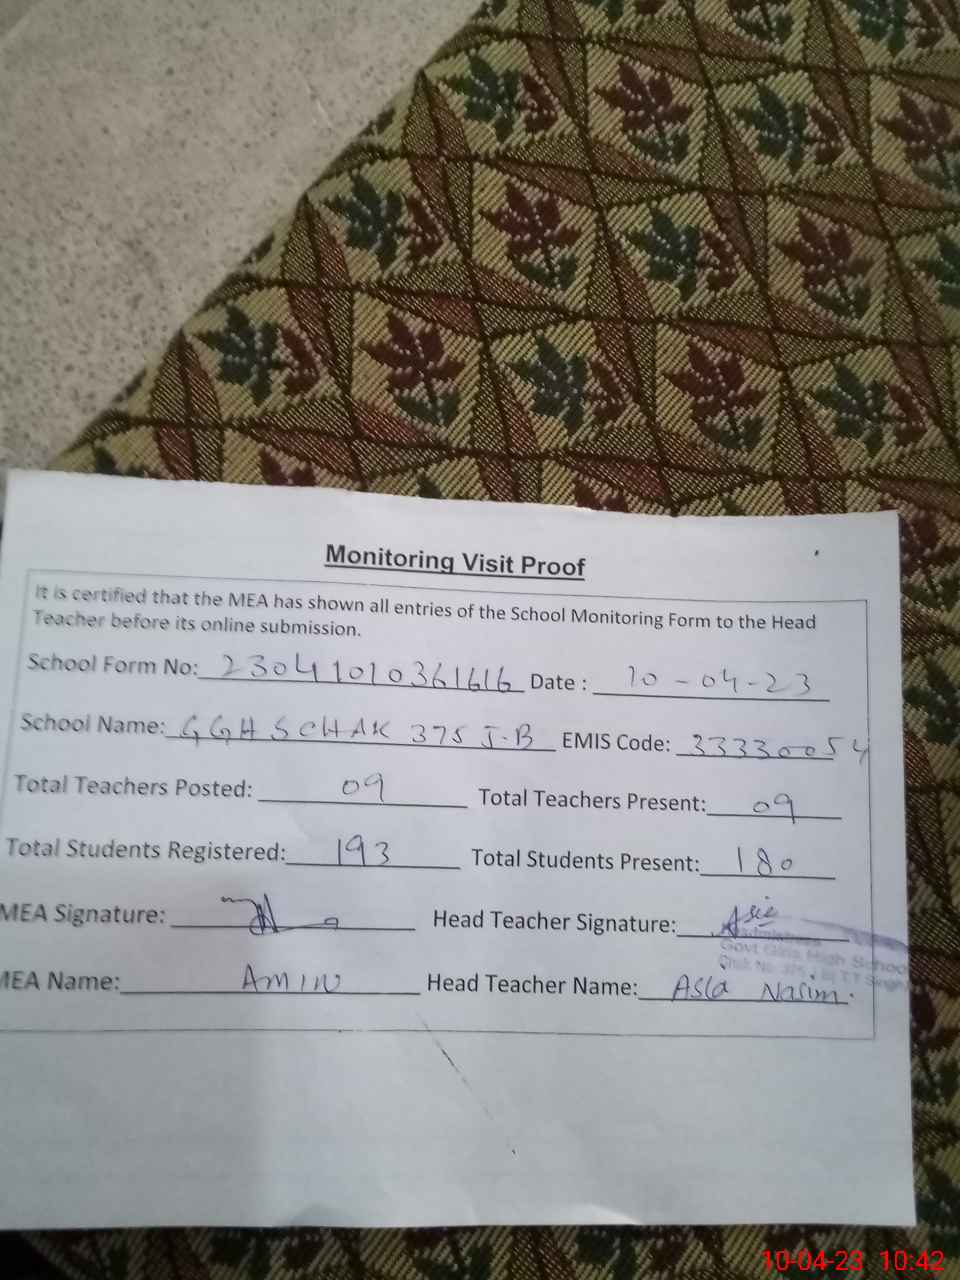 Monitoring Visit Proof
It is certified that the MEA has shown all entries of the School Monitoring Form to the Head
Teacher before its online submission.
School Form No: 23041010361616 Date : 10-04-23
School Name: GGHS CHAK 375 J.B EMIS Code: 33330054
Total Teachers Posted: 09 Total Teachers Present: 09
Total Students Registered: 193 Total Students Present: 180
MEA Signature: Head Teacher Signature: Asia
Govt Girls High School
MEA Name: Amin Head Teacher Name: Asia Nasim.
10-04-23 10:42